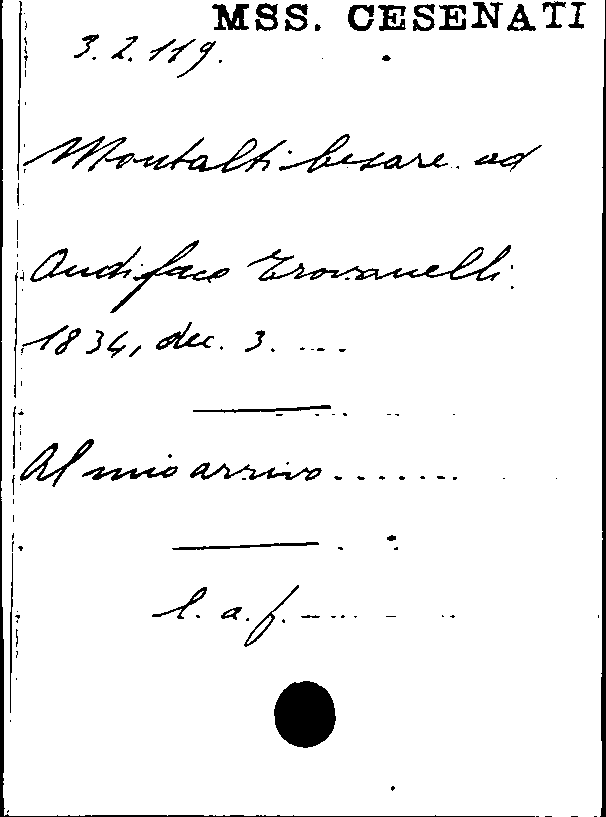 MSS. CESENATI
3.2.119.
Montalti Cesare ad
Audiface Trovanelli
1834, dec. 3. ....
Al mio arrivo.......
l. a. f.